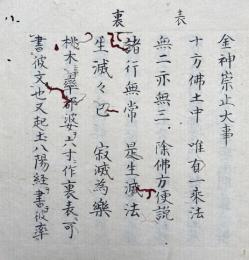 金神崇止大事
表
十方佛土中　唯有一乘法
無二亦無三　除佛方便説
裏
諸行無常　是生滅法
生滅々已　寂滅為樂
桃木率都婆六寸作裏表可
書彼文也又起土八陽経書彼率